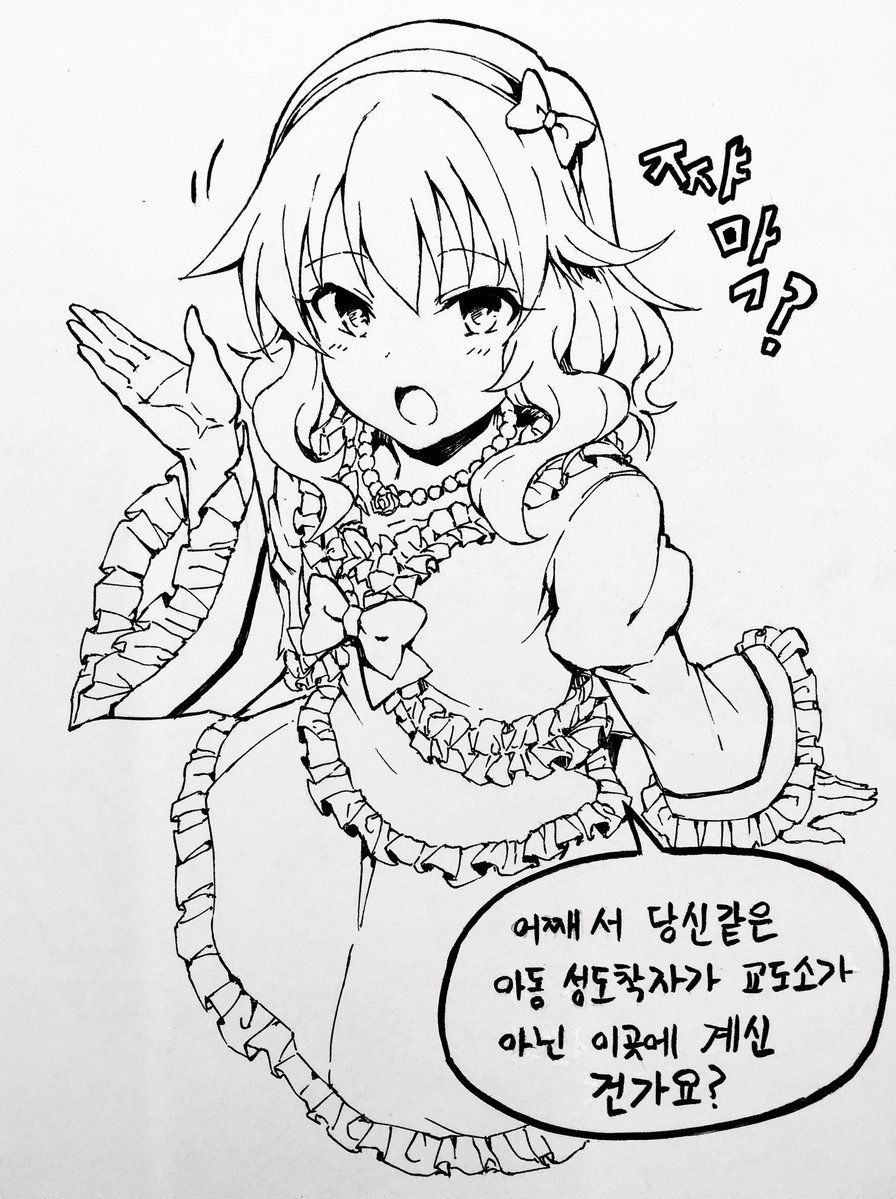 쨔
마
ㄱ?
어째서 당신같은
아동 성도착자가 교도소가
아닌 이곳에 계신
건가요?